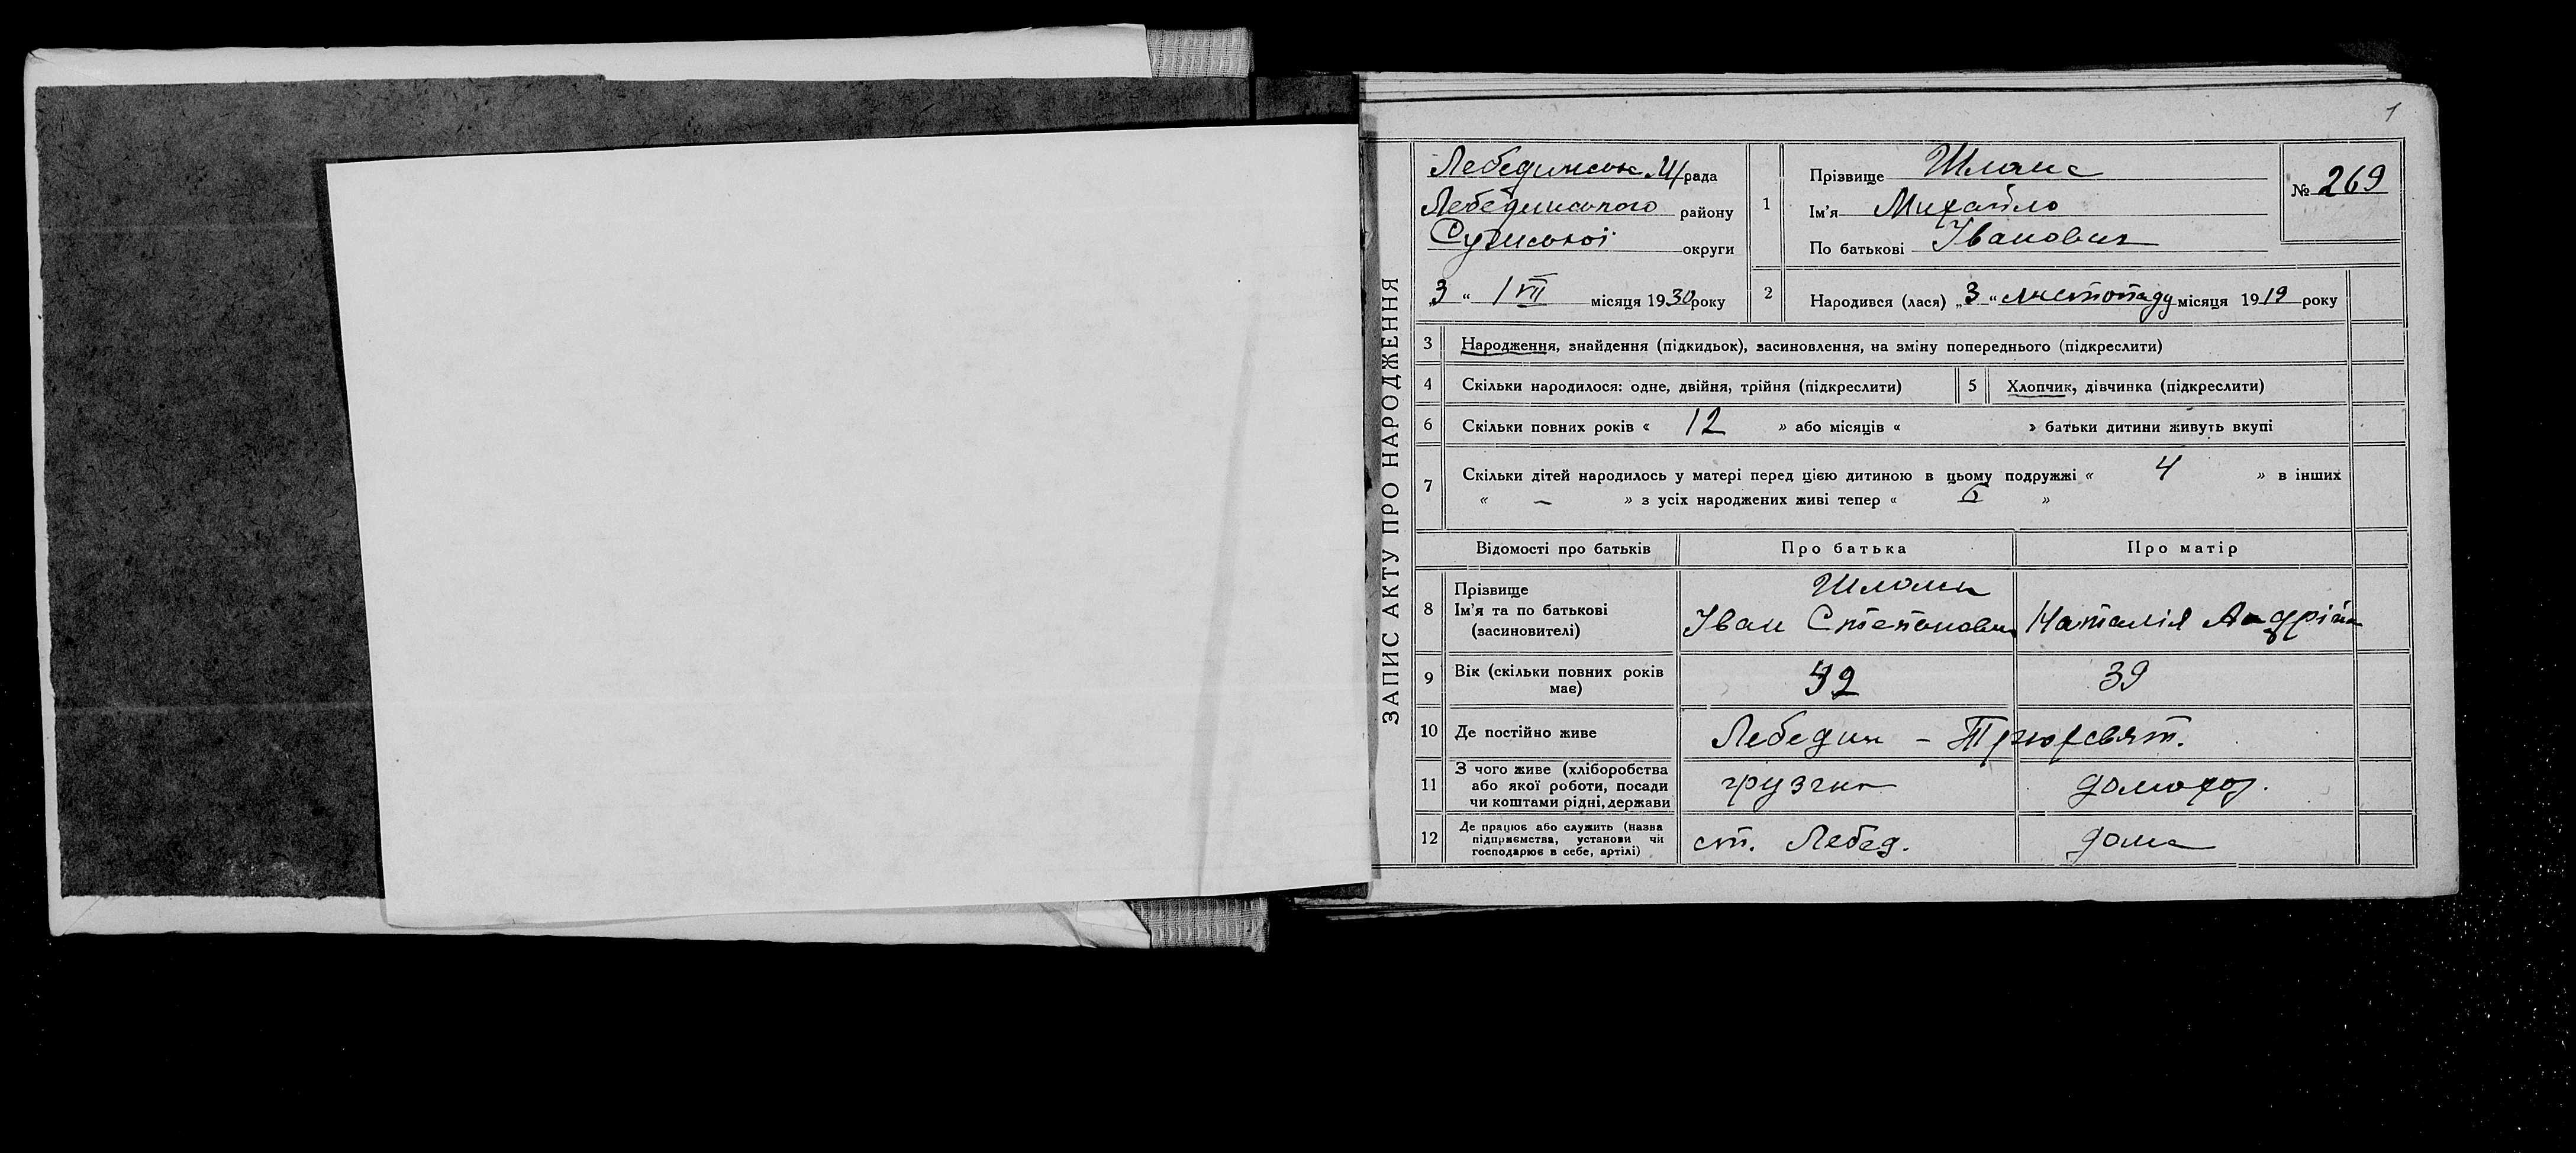 1
ЗАПИС АКТУ ПРО НАРОДЖЕННЯ
рада
Лебединського району
Сумської округи
„3“ VII місяця 1930 року
1
Прізвище
Ім'я Михайло
По батькові Іванович
№ 269
2
Народився (лася) „3“ листопаду місяця 1919 року
3
Народження, знайдення (підкидьок), засиновлення, на зміну попереднього (підкреслити)
4
Скільки народилося: одне, двійня, трійня (підкреслити)
5
Хлопчик, дівчинка (підкреслити)
6
Скільки повних років « 12 » або місяців « » батьки дитини живуть вкупі
7
Скільки дітей народилось у матері перед цією дитиною в цьому подружжі « 4 » в інших
« — » з усіх народжених живі тепер « »
Відомості про батьків
Про батька
Про матір
8
Прізвище
Ім'я та по батькові
(засиновителі)
Іван Степанович
Наталія Андрій
9
Вік (скільки повних років
має)
39
10
Де постійно живе
Лебедин –
11
З чого живе (хліборобства
або якої роботи, посади
чи коштами рідні, держави
грузчик
домохоз.
12
Де працює або служить (назва
підприємства, установи чи
господарює в себе, артілі)
ст. Лебед.
дома